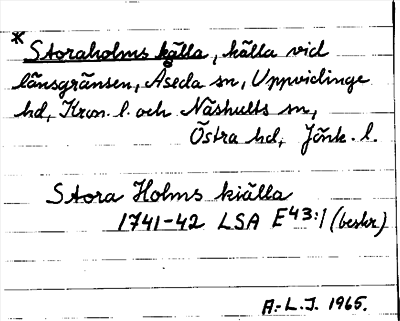 * Storaholms källa, källa vid
länsgränsen, Åseda sn, Uppvidinge
hd, Kron. l. och Näshults sn,
Östra hd, Jönk. l.
Stora Holms kiälla
1741-42 LSA E43:1 (beskr.)
A.-L.J. 1965.